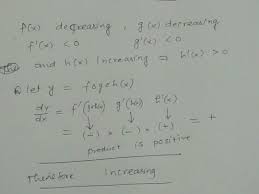 f(x) decreasing , g(x) decreasing
f'(x) < 0 g'(x) < 0
and h(x) increasing ⇒ h'(x) > 0
let y = fogoh(x)
dy/dx = f'(goh(x)) g'(h(x)) h'(x)
= (-) × (-) × (+) = +
product is positive
Therefore Increasing